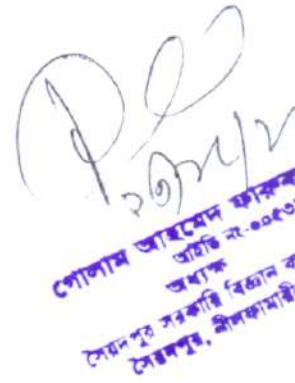 গোলাম আহমেদ ফারুক
আইডি নং-০০৫৩
অধ্যক্ষ
সৈয়দপুর সরকারি বিজ্ঞান ক
সৈয়দপুর, নীলফামারী